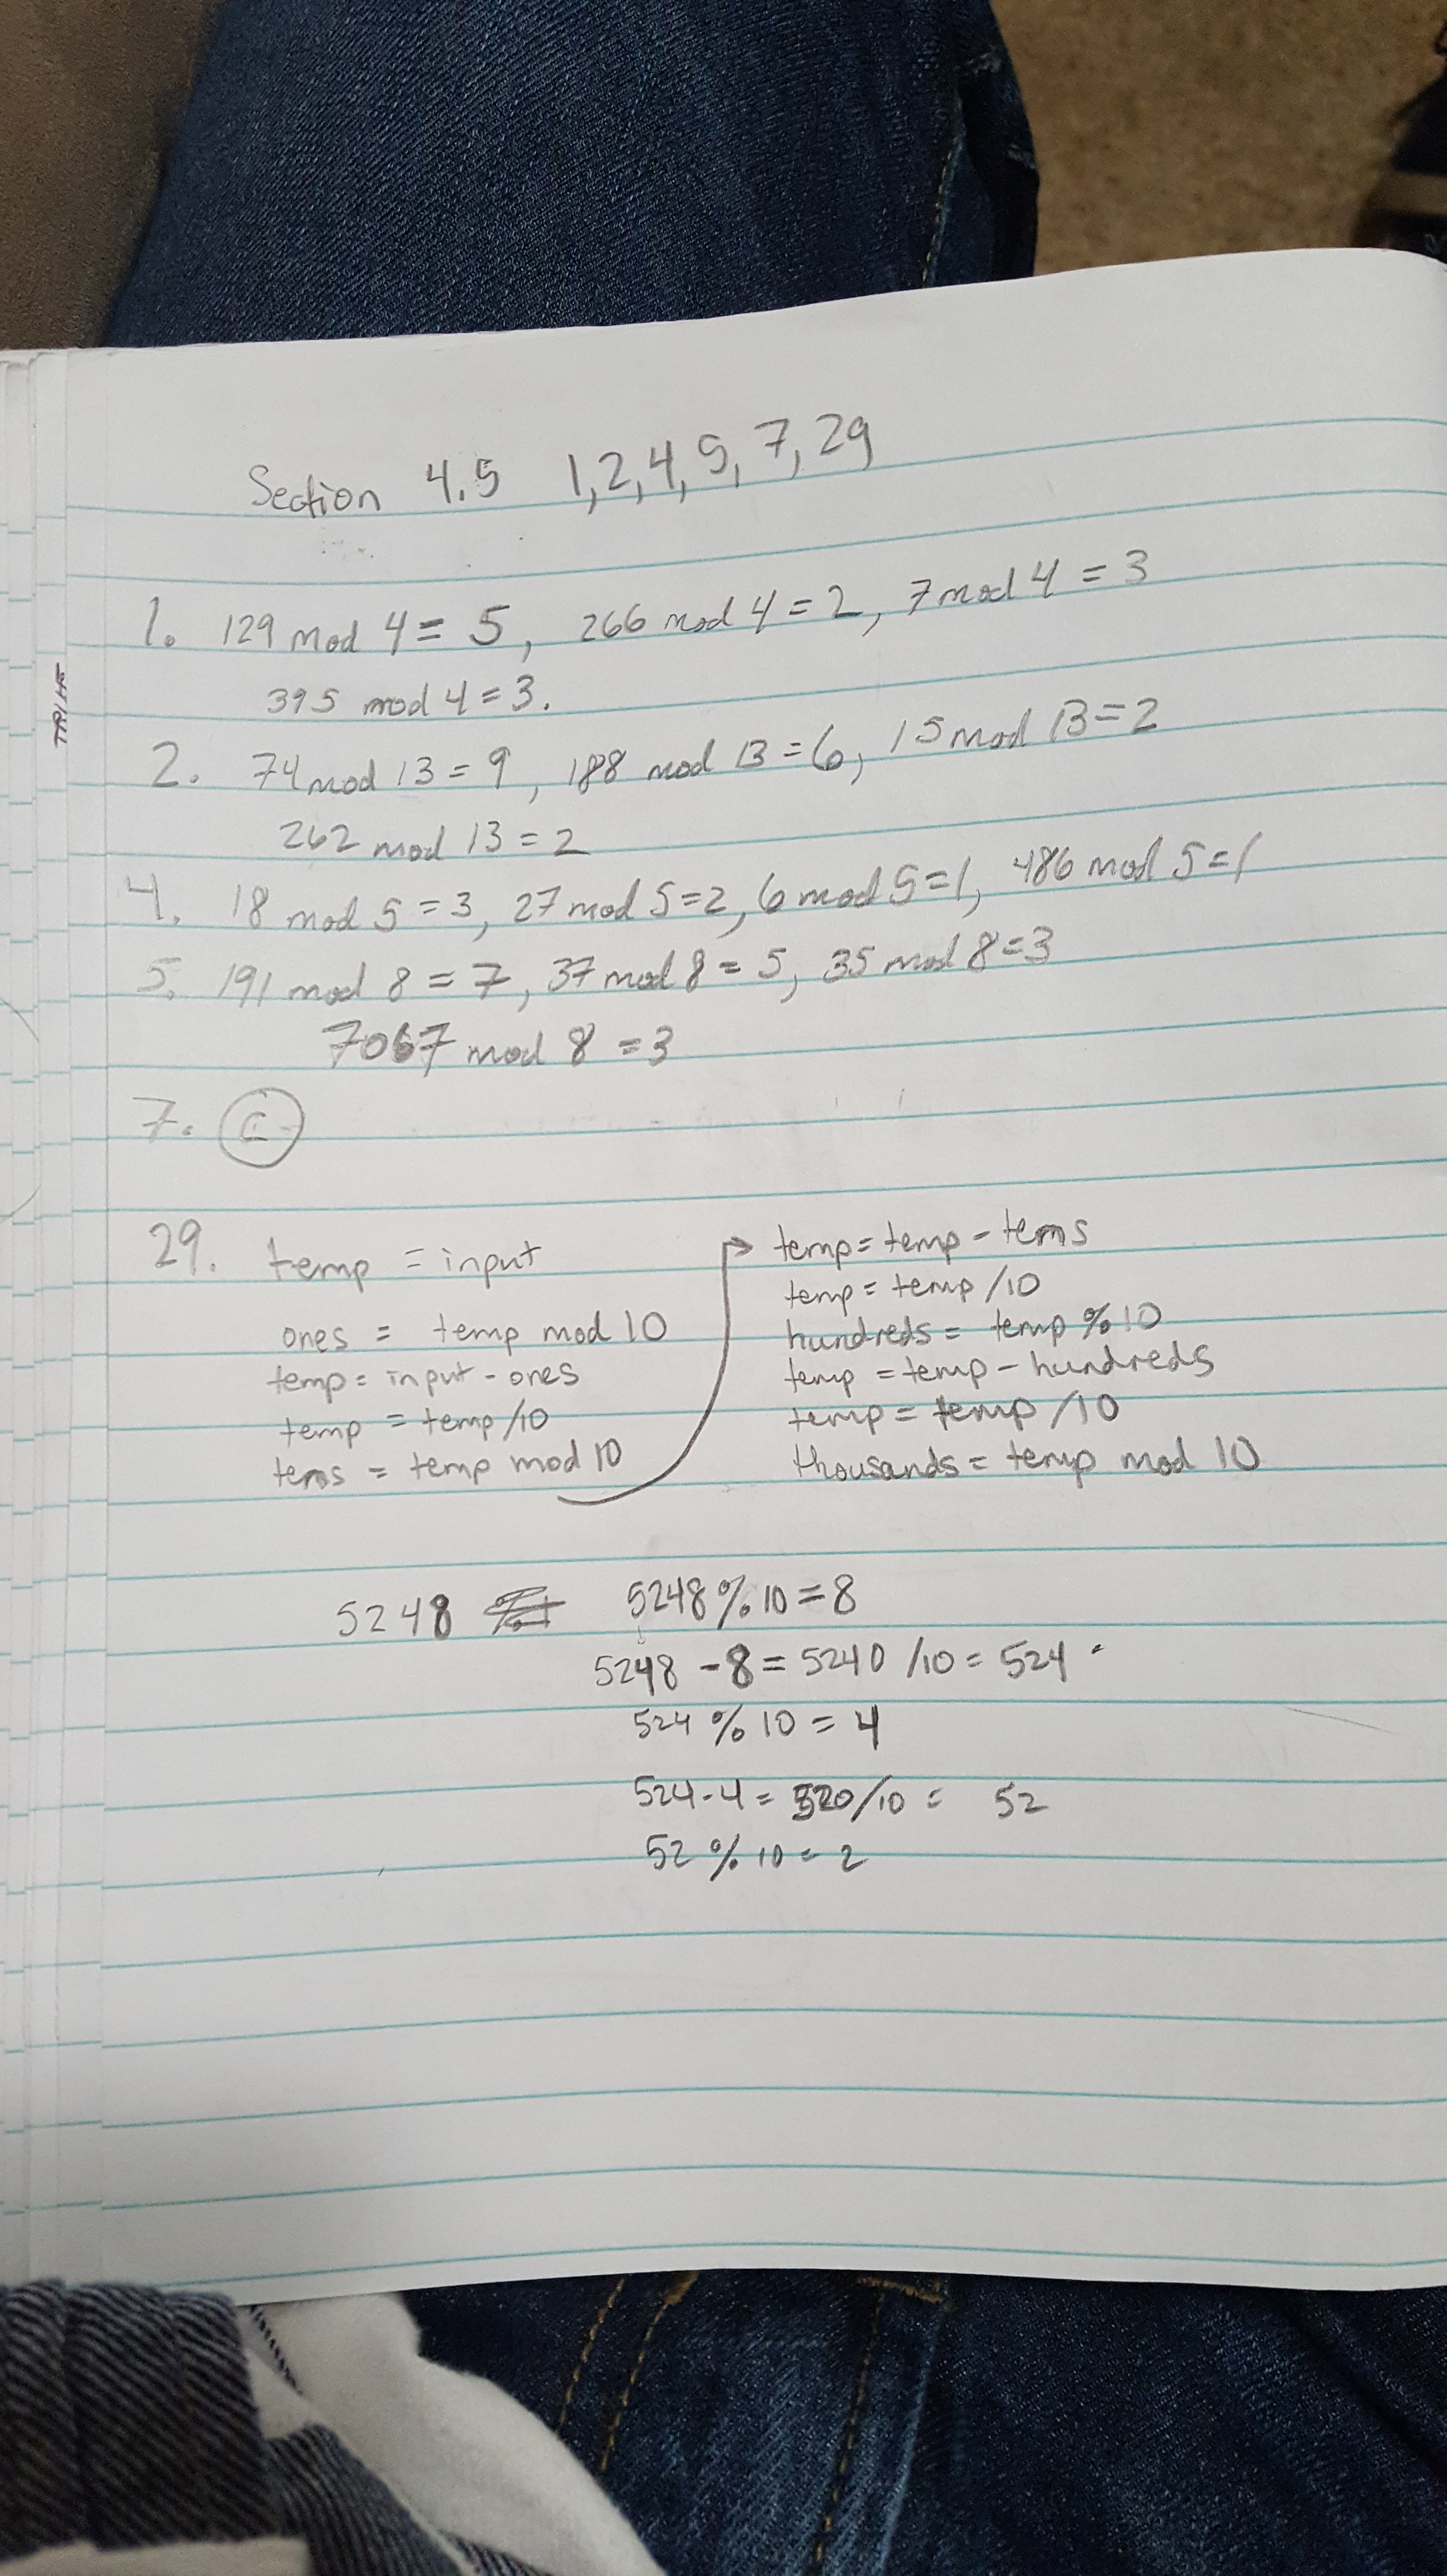 Section 4.5 1,2,4,5,7,29
1. 129 mod 4 = 5, 266 mod 4 = 2, 7 mod 4 = 3
395 mod 4 = 3.
2. 74 mod 13 = 9, 188 mod 13 = 6, 15 mod 13 = 2
262 mod 13 = 2
4. 18 mod 5 = 3, 27 mod 5 = 2, 6 mod 5 = 1, 486 mod 5 = 1
5. 191 mod 8 = 7, 37 mod 8 = 5, 35 mod 8 = 3
7067 mod 8 = 3
7.
29. temp = input
ones = temp mod 10
temp = input - ones
temp = temp /10
tens = temp mod 10
temp = temp - tens
temp = temp /10
hundreds = temp % 10
temp = temp - hundreds
temp = temp /10
thousands = temp mod 10
5248 5248 % 10 = 8
5248 - 8 = 5240 /10 = 524
524 % 10 = 4
524 - 4 = 520/10 = 52
52 % 10 = 2